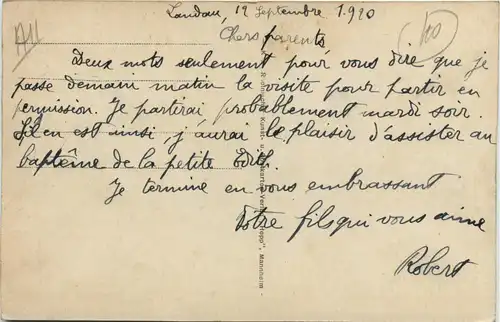 Landau, 12 Septembre 1920
Chers parents
Deux mots seulement pour vous dire que je
passe demain matin la visite pour partir en
permission. Je partirai probablement mardi soir.
S'il en est ainsi, j'aurai le plaisir d'assister au
baptême de la petite
Je termine en vous embrassant
Votre fils qui vous aime
Robert
Mannheim